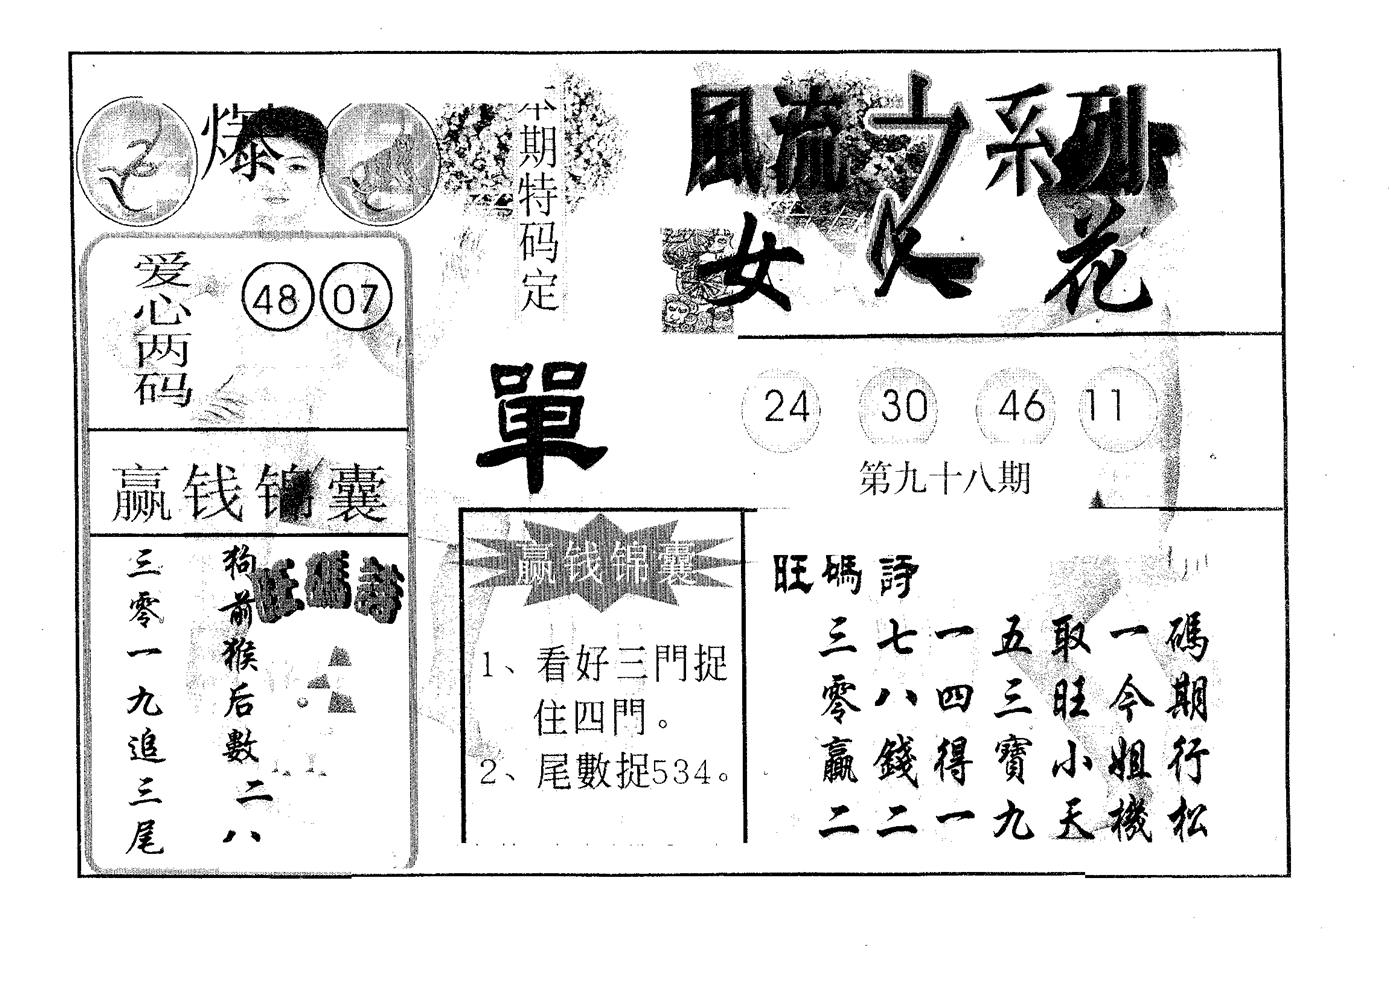 爆
本期特码定
單
風流之系列
女人花
爱心两码
48 07
赢钱锦囊
狗前猴后數二八
三零一九追三尾
旺碼詩
24 30 46 11
第九十八期
赢钱锦囊
1、看好三門捉
住四門。
2、尾數捉534。
旺碼詩
碼期行松
一今姐機
取旺小天
五三寶九
一四得一
七八錢二
三零贏二